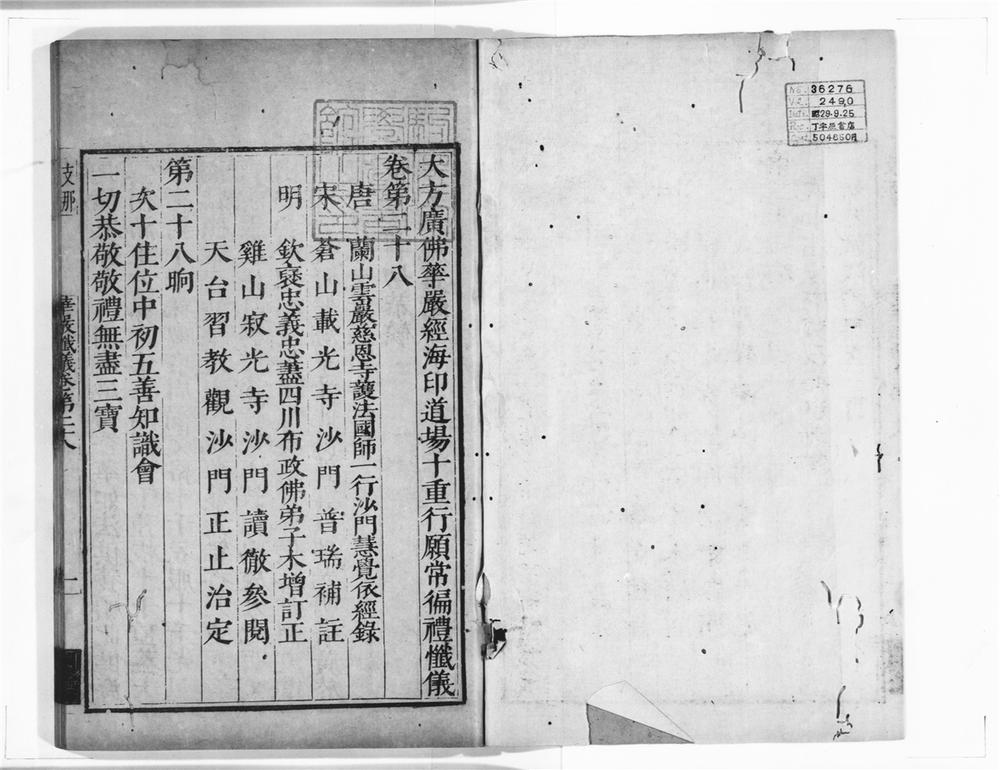 No. 36276
2490
昭29.9.25
504660円
大方廣佛華嚴經海印道場十重行願常徧禮懺儀
卷第二十八
唐 蘭山雲巖慈恩寺護法國師一行沙門慧覺依經錄
宋 蒼山載光寺沙門普瑞補註
明 欽褒忠義忠藎四川布政佛弟子木增訂正
雞山寂光寺沙門讀徹參閱
天台習教觀沙門正止治定
第二十八晌
次十住位中初五善知識會
一切恭敬敬禮無盡三寶
支那
華嚴懺儀卷第二十八
一